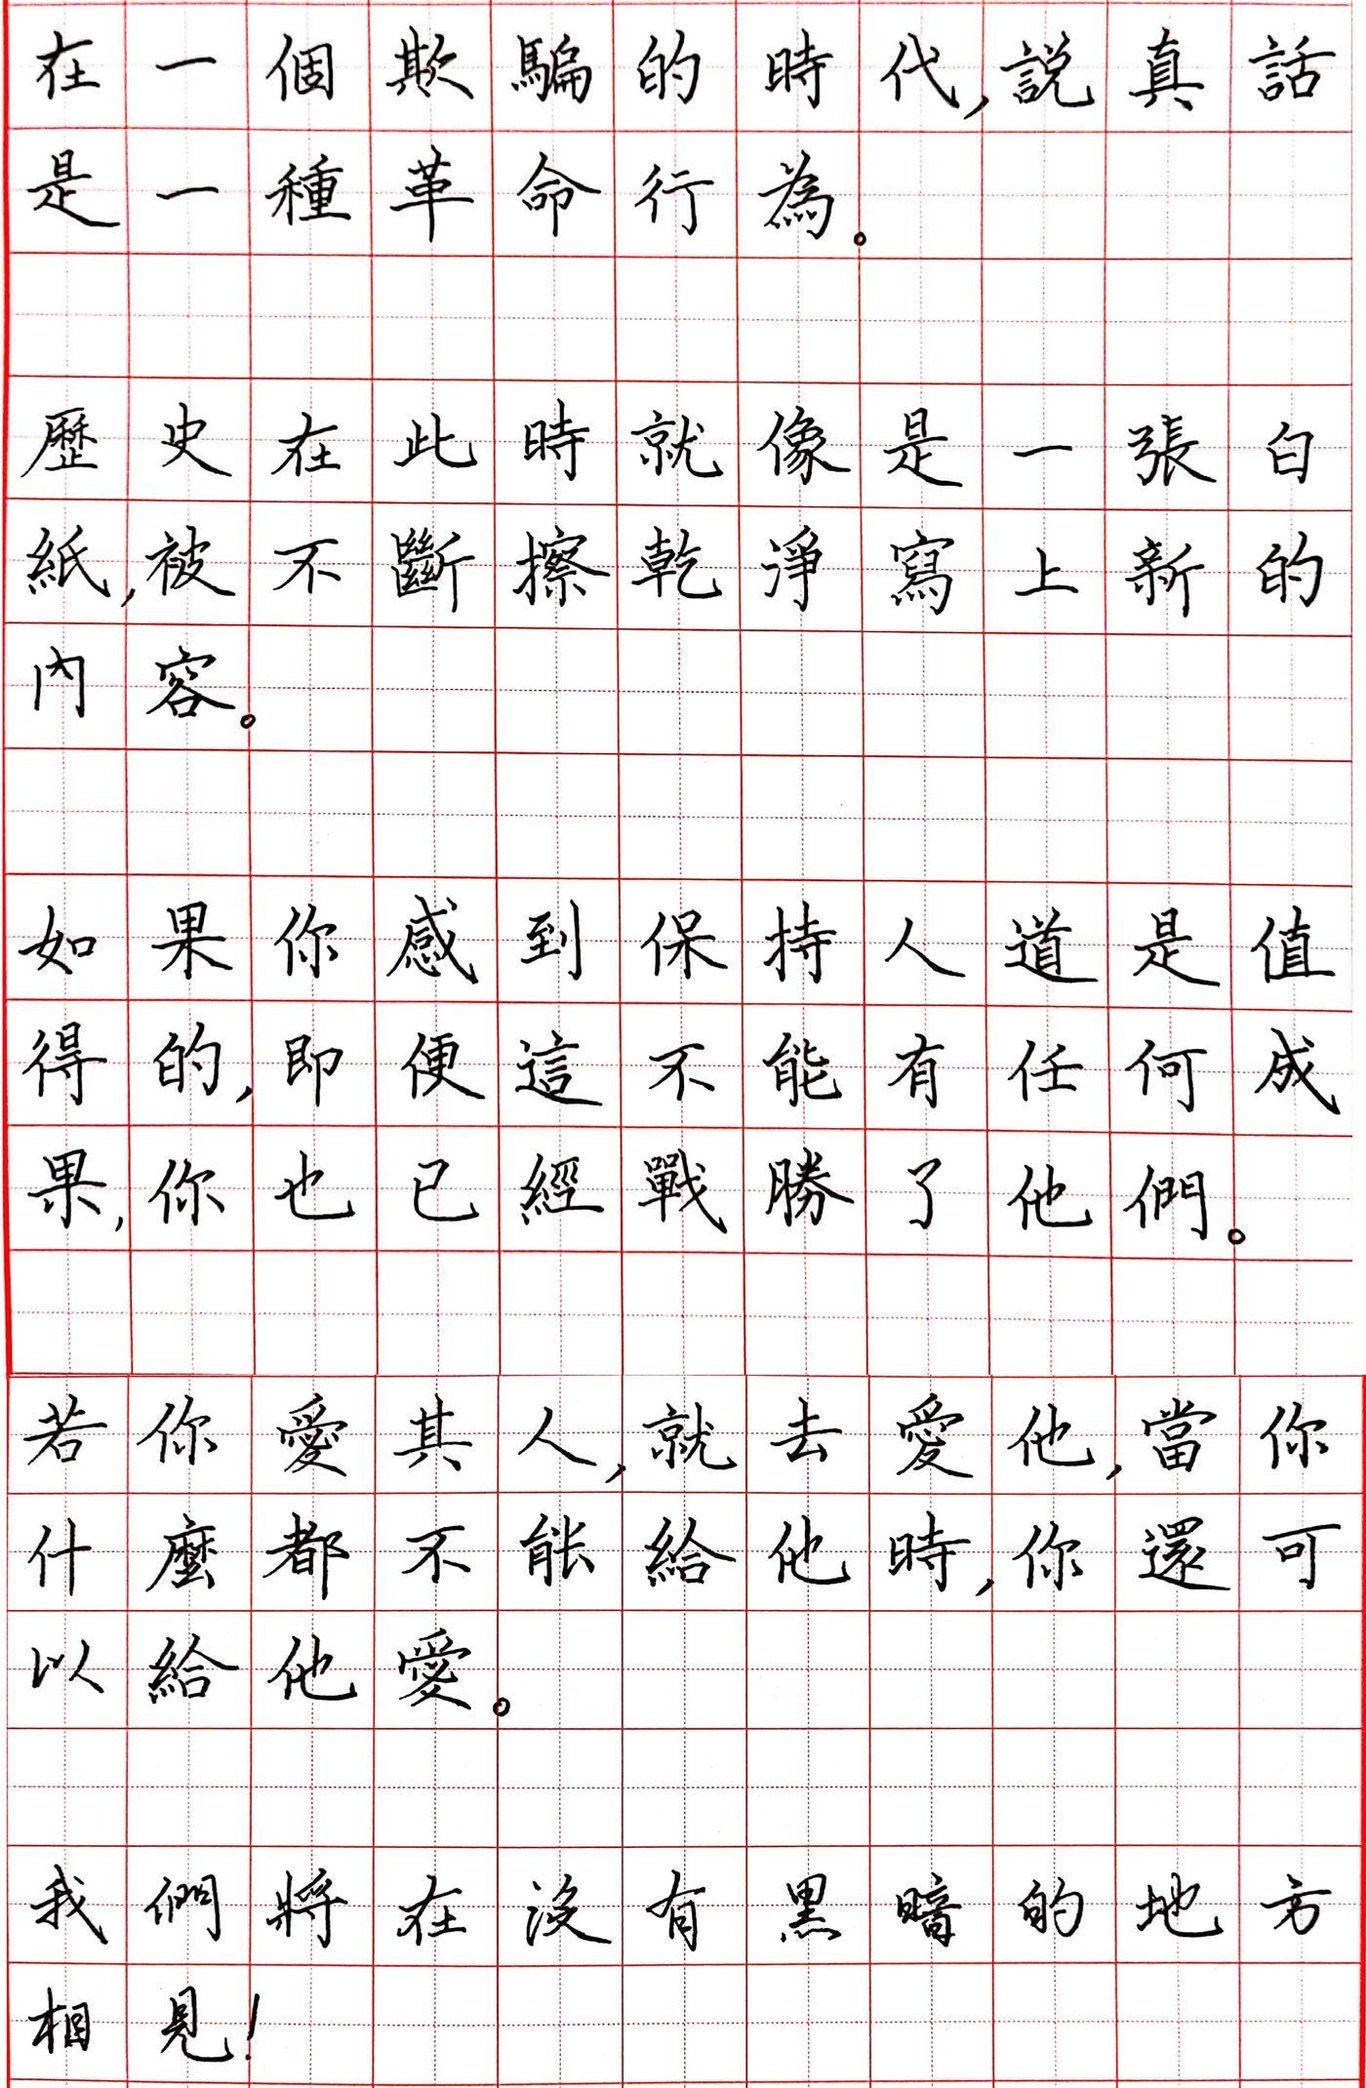 在一個欺騙的時代,説真話
是一種革命行為。
歷史在此時就像是一張白
紙,被不斷擦乾淨寫上新的
內容。
如果你感到保持人道是值
得的,即便這不能有任何成
果,你也已經戰勝了他們。
若你愛其人,就去愛他,當你
什麼都不能給他時,你還可
以給他愛。
我們將在沒有黑暗的地方
相見!